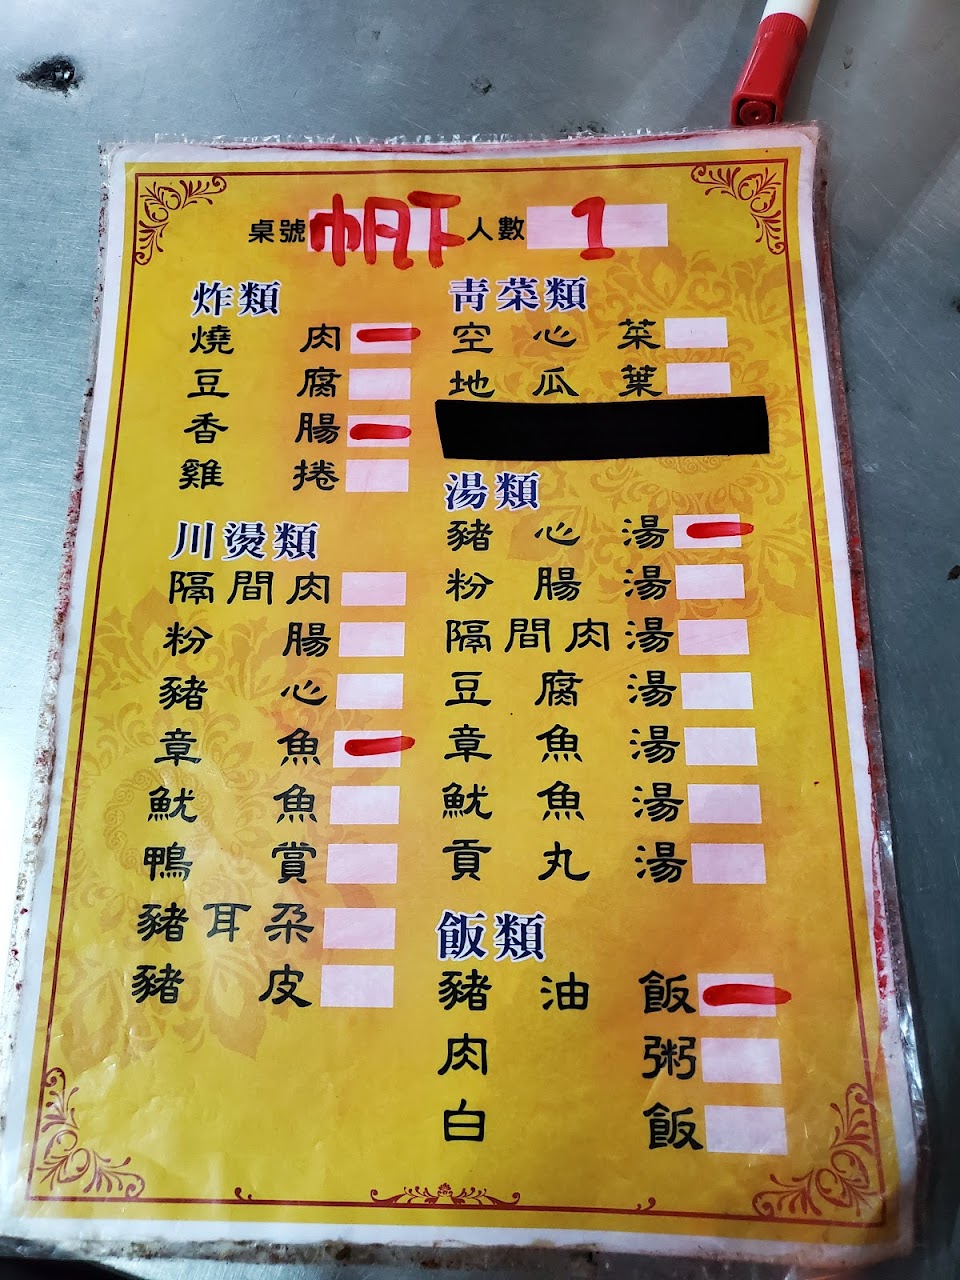 桌號 帆下 人數 1
炸類
燒肉 一
豆腐
香腸 一
雞捲
川燙類
隔間肉
粉腸
豬心
章魚 一
魷魚
鴨賞
豬耳朶
豬皮
青菜類
空心菜
地瓜葉
湯類
豬心湯 一
粉腸湯
隔間肉湯
豆腐湯
章魚湯
魷魚湯
貢丸湯
飯類
豬油飯 一
肉粥
白飯